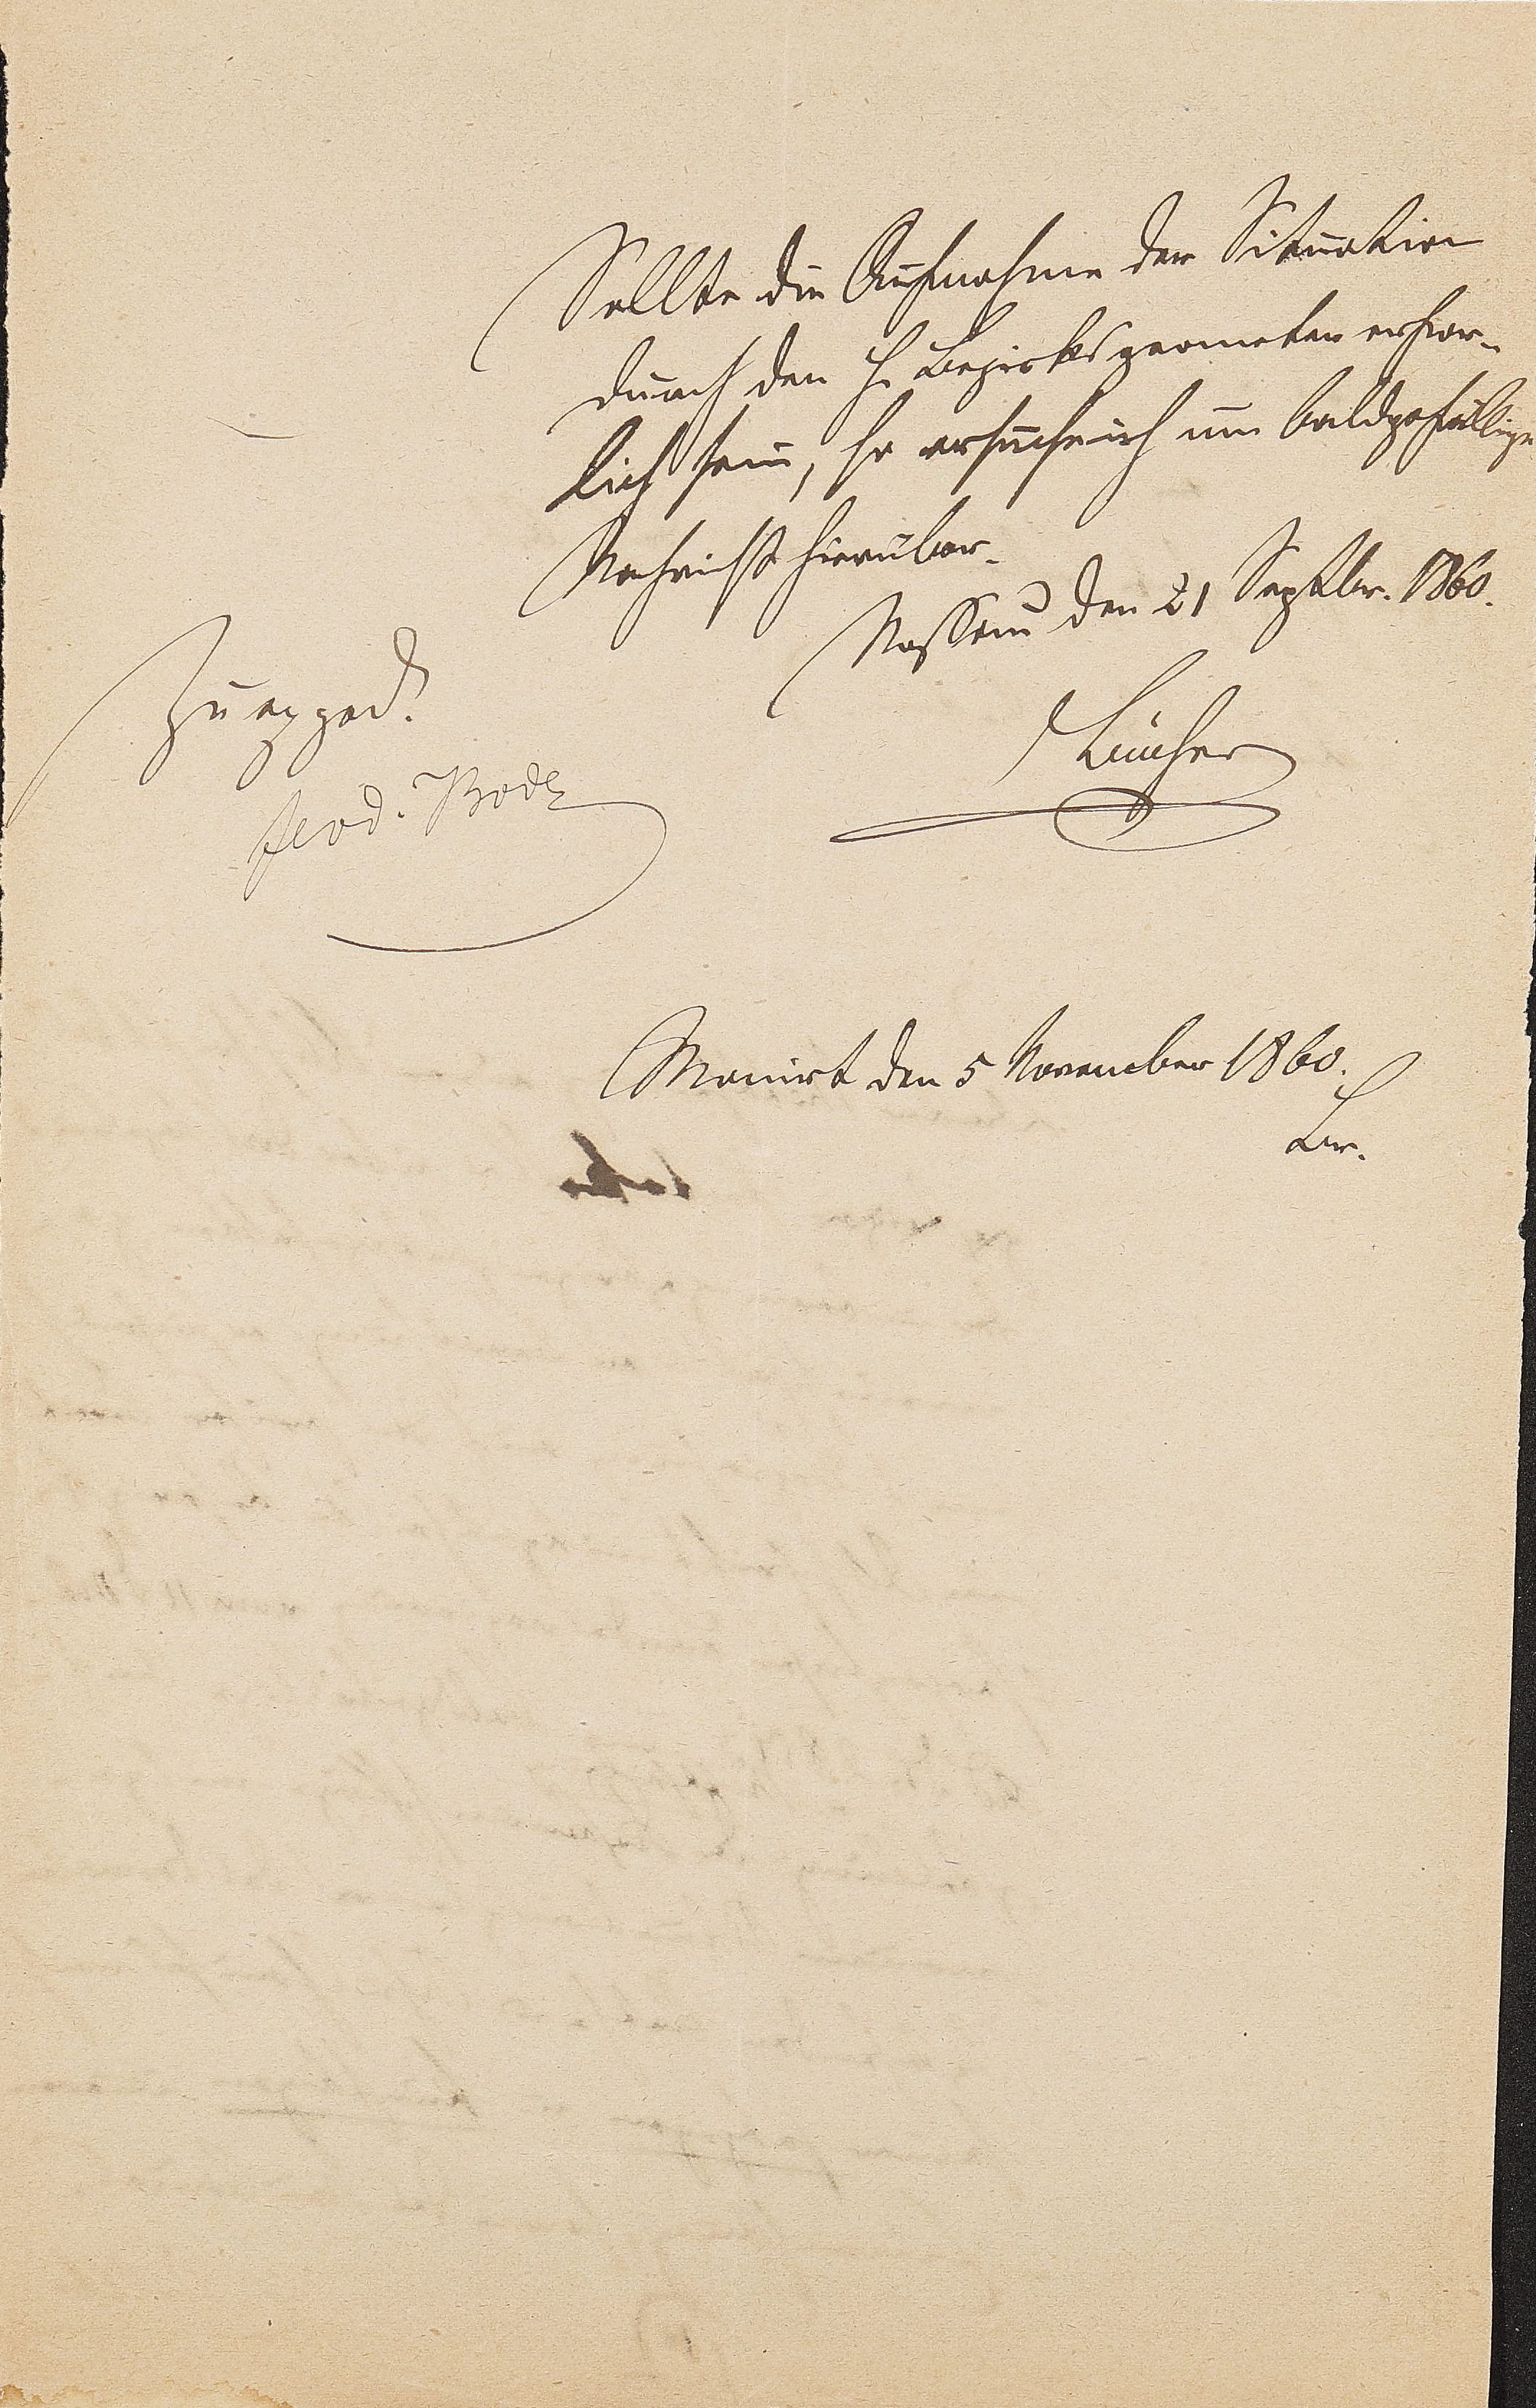 Sollte die Aufnahme der Situation
durch den H. Bezirksgeometer erfor-
lich sein, so ersuche ich um baldgefällige
Nachricht hierüber.
Nassau den 21 Septbr. 1860.
Bücher
Zu exped.
Ferd. Bode
Monirt den 5 November 1860.
Br.